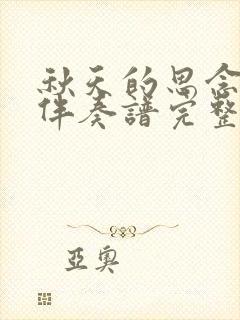 秋天的思念
伴奏谱完整
亞奧